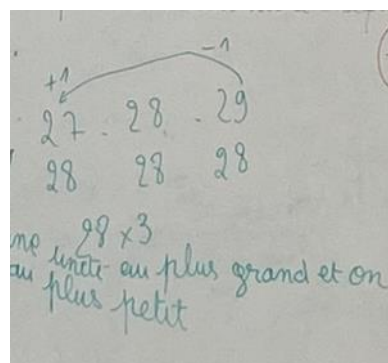 +1 -1
27 . 28 . 29
28 28 28
28 × 3
ne unité au plus grand et on
au plus petit